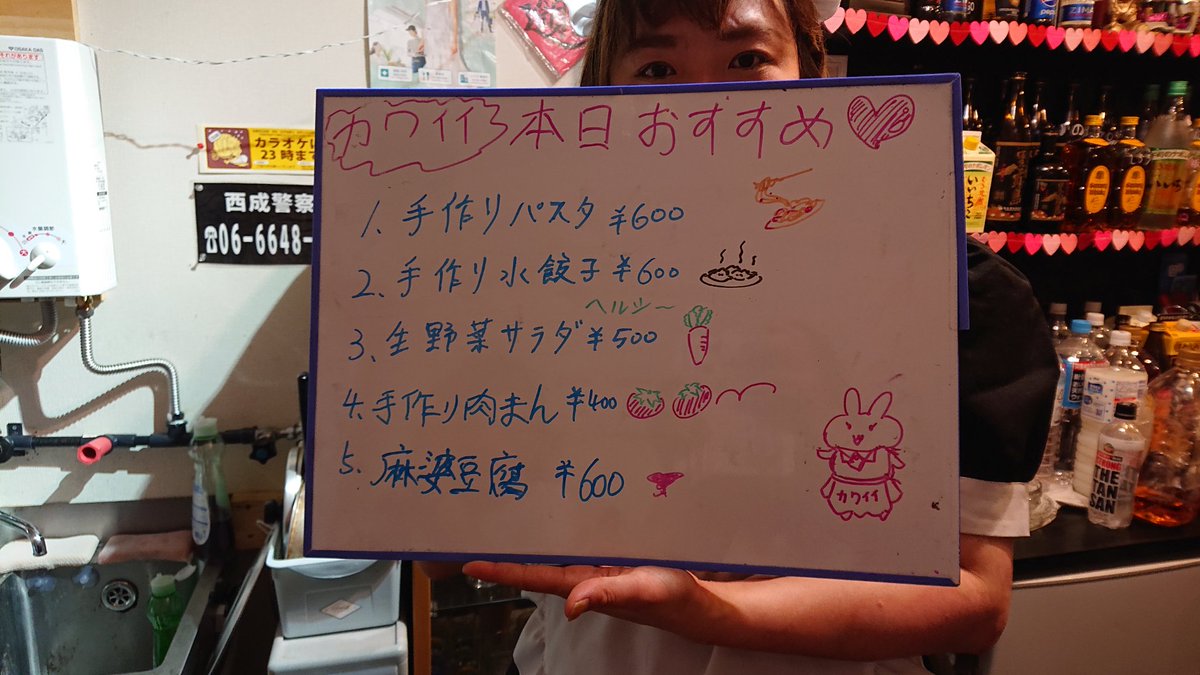 OSAKA GAS
水量調節
カラオケは
23時まで
西成警察
☎06-6648-
カワイイ 本日おすすめ
1. 手作りパスタ ¥600
2. 手作り水餃子 ¥600
ヘルシ〜
3、生野菜サラダ ¥500
4. 手作り肉まん ¥400
5. 麻婆豆腐 ¥600
カワイイ
いいちこ
STRONG
THE
TAN
SAN